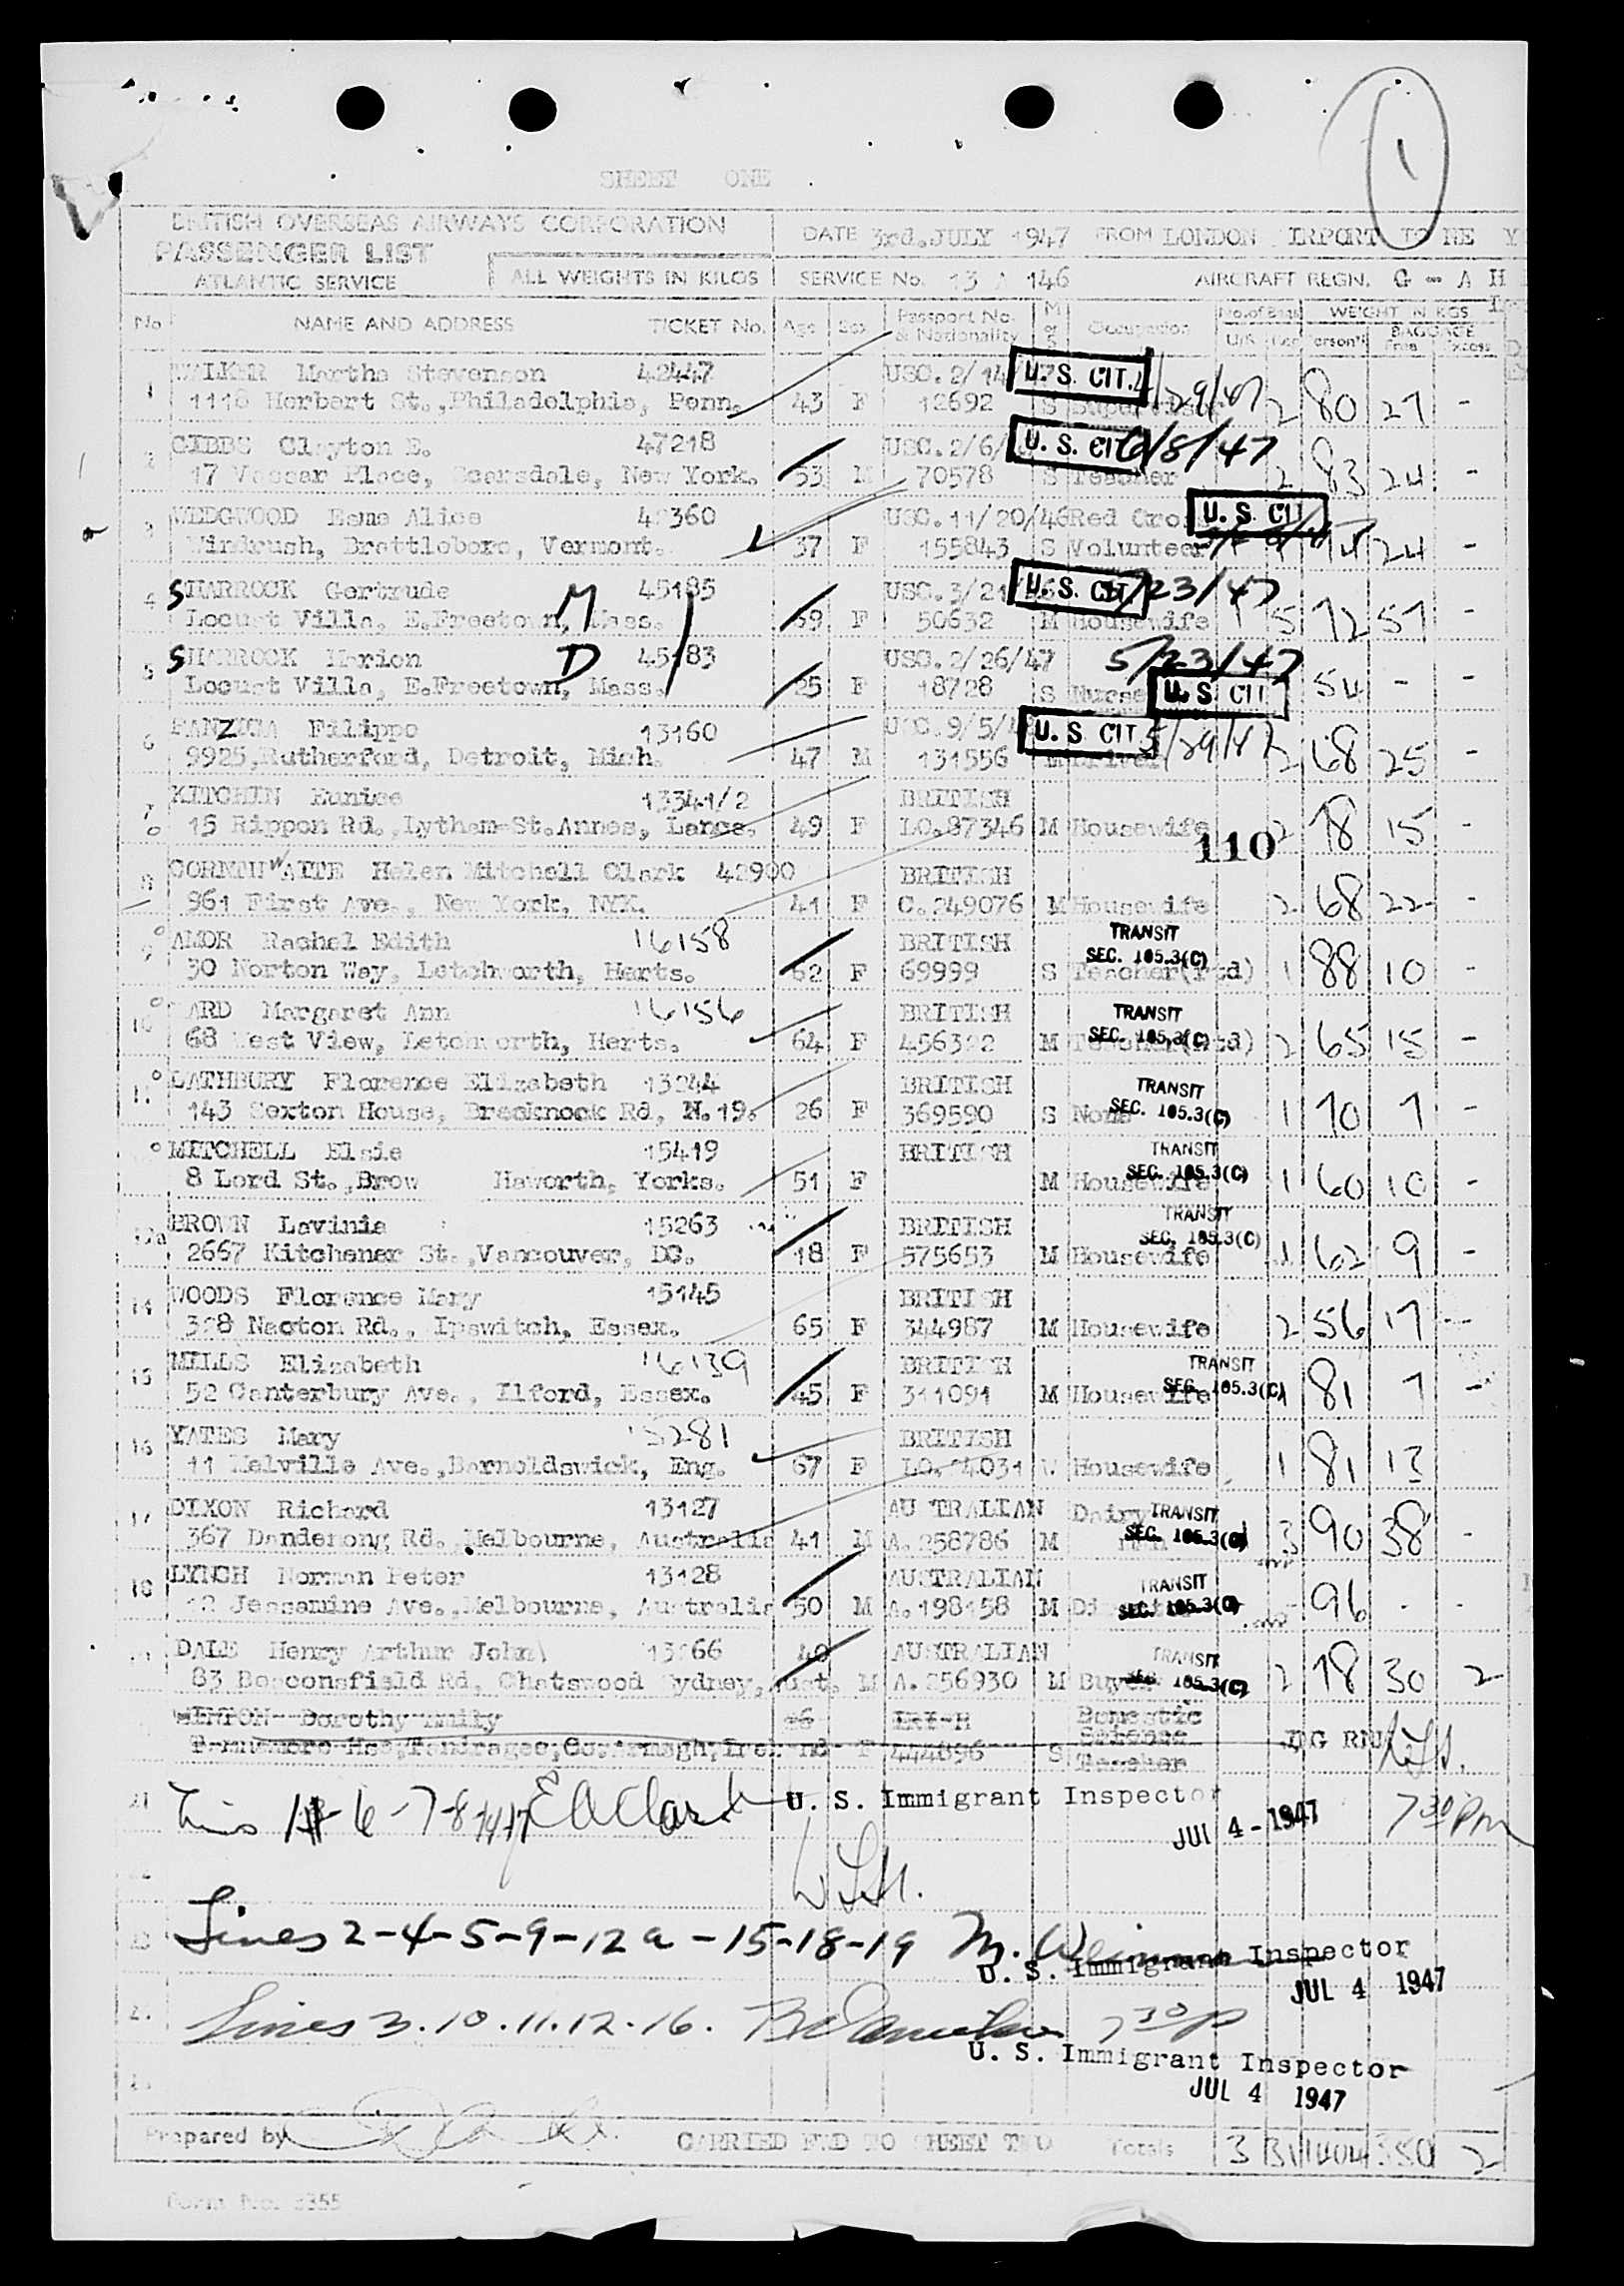 1
SHEET ONE
BRITISH OVERSEAS AIRWAYS CORPORATION
PASSENGER LIST
ATLANTIC SERVICE
ALL WEIGHTS IN KILOS
DATE 3rd. JULY 1947 FROM LONDON IRPORT TO NE Y
SERVICE No. 13 A 146 AIRCRAFT REGN. G - A H
No NAME AND ADDRESS TICKET No. Age Sex Passport No. & Nationality M or S Occupation No. of Bags WEIGHT IN KGS
BAGGAGE
1 WALKER Martha Stevenson 42447 USC. 2/14/ U. S. CIT. 4/29/47
1118 Herbert St., Philadelphia, Penn. 43 F 12692 S Supervisor 2 80 27 -
2 GIBBS Clayton E. 47218 USC. 2/6/ U. S. CIT 6/8/47
17 Vassar Place, Scarsdale, New York. 53 M 70578 S Teacher 2 83 24 -
3 WEDGWOOD Esme Alice 360 USC. 11/20/46 Red Cro U. S. CIT
Windrush, Brattleboro, Vermont. 37 F 155843 S Volunteer 24 -
4 SHARROCK Gertrude M 45185 USC. 3/21 U. S. CIT 5/23/47
Locust Villa, E.Freetown, Mass. 59 F 50632 M Housewife 1 5 72 57 -
5 SHARROCK Marion D 45183 USC. 2/26/47 5/23/47
Locust Villa, E.Freetown, Mass. 25 F 18728 S Nurse U. S. CIT 54 - -
6 Filippo 13160 USC. 9/5/ U. S. CIT. 5/29/47
9925, Rutherford, Detroit, Mich. 47 M 131556 M Driver 2 68 25 -
7 KITCHIN Eunice 13341/2 BRITISH
15 Rippon Rd., Lytham-St.Annes, Lancs. 49 F LO. 87346 M Housewife 2 78 15 -
110
8 CORNTHWAITE Helen Mitchell Clark 42900 BRITISH
961 First Ave., New York. NYK. 41 F C. 249076 M Housewife 2 68 22 -
9 AMOR Rachel Edith 16158 BRITISH TRANSIT
30 Norton Way, Letchworth, Herts. 62 F 69999 S Teacher(rtd) SEC. 105.3(C) 1 88 10 -
10 ARD Margaret Ann 16156 BRITISH TRANSIT
68 West View, Letchworth, Herts. 64 F 4563 2 M Teacher(rtd) SEC. 105.3(C) 2 65 15 -
11 LATHBURY Florence Elizabeth 13244 BRITISH TRANSIT
143 Sexton House, Brecknock Rd, N.19. 26 F 369590 S None SEC. 105.3(C) 1 70 7 -
MITCHELL Elsie 15419 BRITISH TRANSIT
8 Lord St., Brow Haworth, Yorks. 51 F M Housewife SEC. 105.3(C) 1 60 10 -
12a BROWN Lavinia 15263 BRITISH TRANSIT
2667 Kitchener St., Vancouver, BC. 18 F 575653 M Housewife SEC. 105.3(C) 1 62 9 -
14 WOODS Florence Mary 15145 BRITISH
328 Nacton Rd., Ipswitch, Essex. 65 F 344987 M Housewife 2 56 17 -
15 MILLS Elizabeth 16139 BRITISH TRANSIT
52 Canterbury Ave., Ilford, Essex. 45 F 311091 M Housewife SEC. 105.3(C) 1 81 7 -
16 YATES Mary 15281 BRITISH
11 Melville Ave., Barnoldswick, Eng. 67 F LO. 4031 W Housewife 1 81 13
17 DIXON Richard 13127 AUSTRALIAN Dairy TRANSIT
367 Dandenong Rd., Melbourne, Australia 41 M A. 258786 M SEC. 105.3(C) 3 90 38 -
18 LYNCH Norman Peter 13128 AUSTRALIAN TRANSIT
12 Jessamine Ave., Melbourne, Australia 50 M A. 198158 M SEC. 105.3(C) 96 - -
DALE Henry Arthur John 13166 40 AUSTRALIAN TRANSIT
83 Beaconsfield Rd, Chatswood Sydney, Aust. M A. 256930 M Buyer 105.3(C) 2 78 30 2
Dorothy Emily 26 IRISH Domestic Science
Hse, Tandragee, Co. Armagh, Ireland F 444896 S Teacher
21 6-7-8-14-17 E A Clark U. S. Immigrant Inspector
JUL 4 - 1947 7 30 PM
23 Lines 2-4-5-9-12a-15-18-19 M.
U. S. Immigrant Inspector
JUL 4 1947
Lines 3.10.11.12.16. 7 30 P
U. S. Immigrant Inspector
JUL 4 1947
Prepared by CARRIED FWD TO SHEET TWO Totals 3 31 1404 380 2
Form No: 2355